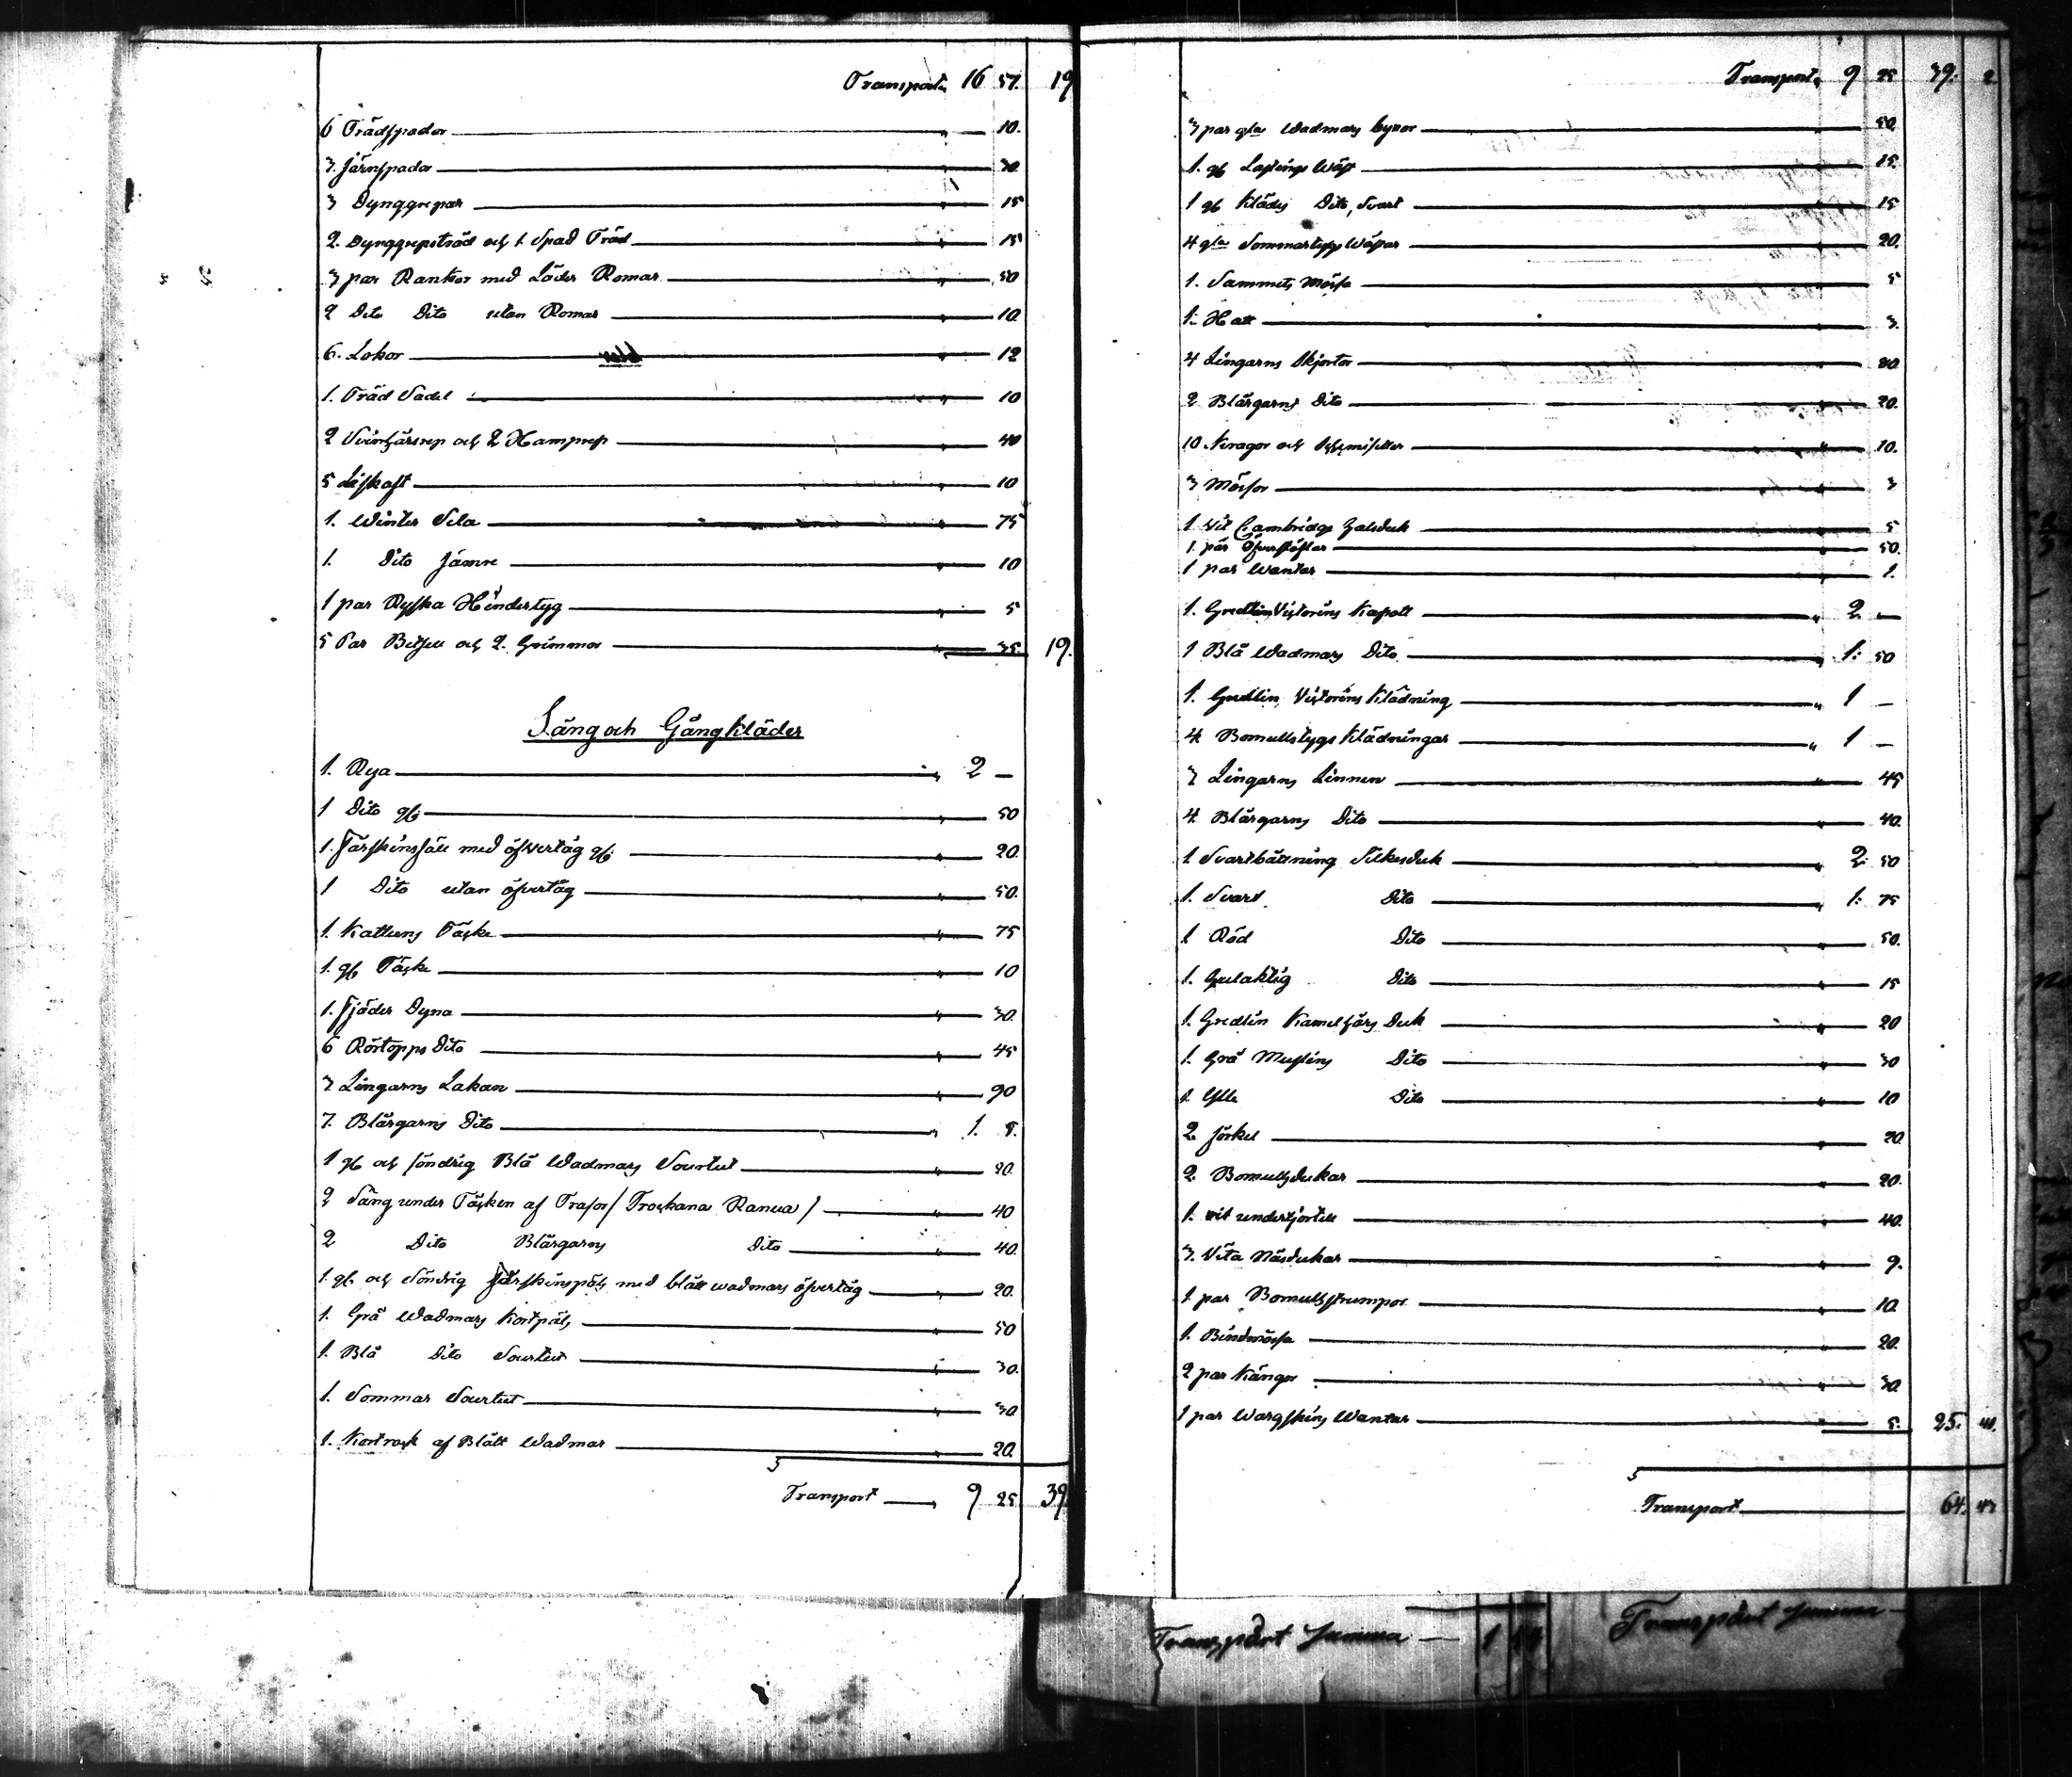 Transport „ 16 57. 19
6 Trädspador „ — 10.
3. Järnspador „ — 30.
3 Dynggrepar „ — 15
2. Dynggrepsträd och 1 Spad Träd „ — 15
3 par Rankor med Läder Romar „ — 50
2 Dito Dito utan Romar „ — 10
6. Lokor „ — 12
1. Träd Sadel „ — 10
2 Svinhårsrep och 2 Hamprep „ — 40
5 Lieskaft „ — 10
1. Winter Sela „ — 75
1. Dito Sämre „ — 10
1 par Ryska Höndertyg „ — 5
5 Par Betsel och 2. Grimmor „ — 35. 19.
Säng och Gångkläder
1. Rya „ 2 —
1 Dito gl: „ — 50
1. Fårskinsfäll med öfvertåg gl: „ — 20.
1 Dito utan öfvertåg „ — 50.
1. Kattuns Täcke „ — 75
1. gl. Täcke „ — 10
1. Fjäder Dyna „ — 30.
6 Rörtopps Dito „ — 45
3 Lingarns Lakan „ — 90
7. Blårgarns Dito „ 1. 5.
1 gl. och söndrig Blå Wadmars Sourtut „ — 20.
2 Säng under Täcken af Trasor / Trockana Ranua / „ — 40
2 Dito Blårgarns Dito „ — 40.
1. gl. och Söndrig Fårskinspäls med blått wadmars öfvertåg „ — 20.
1. Grå Wadmars Kortpäls „ — 50
1. Blå Dito Sourtut „ — 30.
1. Sommar Sourtut „ — 30.
1. Kortrock af Blått Wadmar „ — 20.
Transport „ 9 25 39
Transport „ 9 25 39. 2.
3 par gla Wadmars byxor „ — 50.
1. gl. Lastings Wäst „ — 15.
1 gl Klädes Dito, Svart „ — 15
4 gla Sommartygs Wästar „ — 20.
1. Sammets Mössa „ — 5
1. Hatt „ — 3.
4 Lingarns Skjortor „ — 80
2 Blårgarns Dito „ — 20.
10 Kragor och Schemisetter „ — 10.
3 Mössor „ — 3
1 Vit Cambridge halsduk „ — 5
1. par Öfverstöflar „ — 50.
1 par Wantar „ — 1.
1. Gredlin Victorins Kapott „ 2 —
1 Blå Wadmars Dito „ 1: 50
1. Gredlin Victorins Klädning „ 1 —
4. Bomullstygs Klädningar „ 1 —
3 Lingarns Linnen „ — 45
4. Blårgarns Dito „ — 40.
1 Svartbåttning Silkesduk „ 2. 50
1. Svart Dito „ 1: 75
1 Röd Dito „ — 50.
1. Gulaktig Dito „ — 15
1. Gredlin Kamelhårs Duk „ — 20
1. Grå Muslins Dito „ — 30
1. Ylle Dito „ — 10
2. Förkel „ — 20.
2 Bomullsdukar „ — 20.
1. vit underkjortell „ — 40.
3. Vita Näsdukar „ — 9.
1 par Bomullsstrumpor „ — 10.
1. Bindmössa „ — 20.
2 par Kängor „ — 30.
1 par Wargskins Wantar „ — 5. 25. 41.
Transport 64. 43
Transpårt Summa — 1
Transpårt Summa —